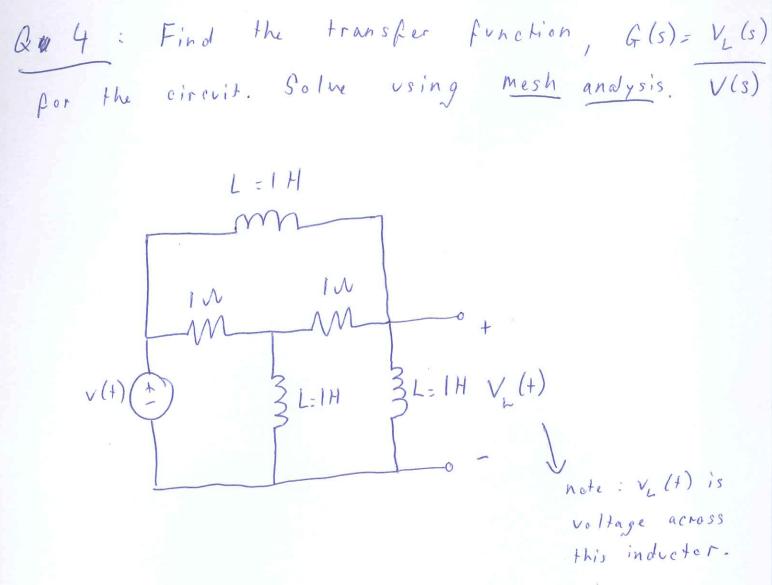 Q 4 : Find the transfer function, G(s) = V_L(s)
for the circuit. Solve using mesh analysis. V(s)
L = 1 H
1Ω 1Ω
+
v(t) + - L=1H L=1H V_L(t)
-
note : v_L(t) is
voltage across
this inductor.